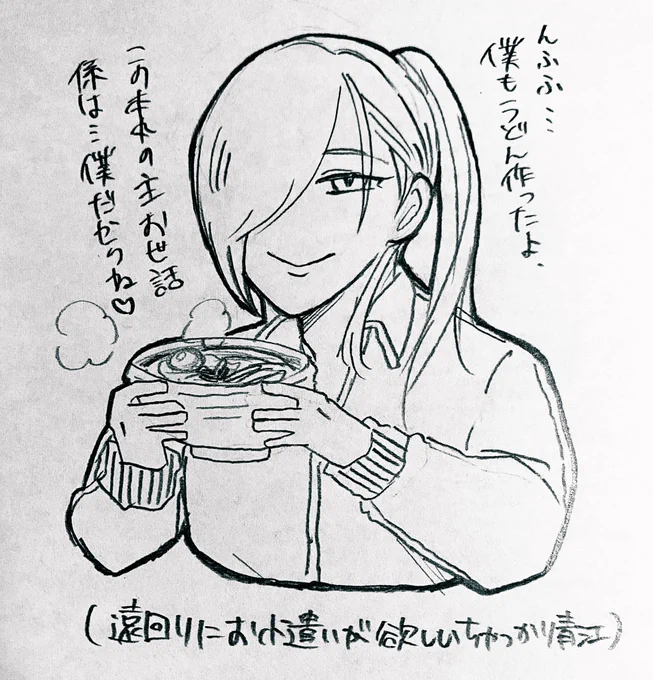 んふふ…
僕もうどん作ったよ、
この本丸の主お世話
係は…僕だからね♡
(遠回りにお小遣いが欲しいちゃっかり青江)